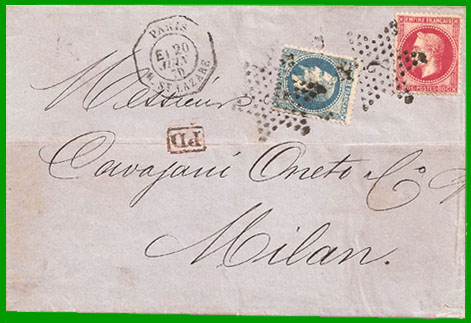 PARIS
E1 20
JUIN
70
(R. ST LAZARE)
EMPIRE FRANÇAIS
Messieurs
PD
Cavajani Oneto & Co
Milan.